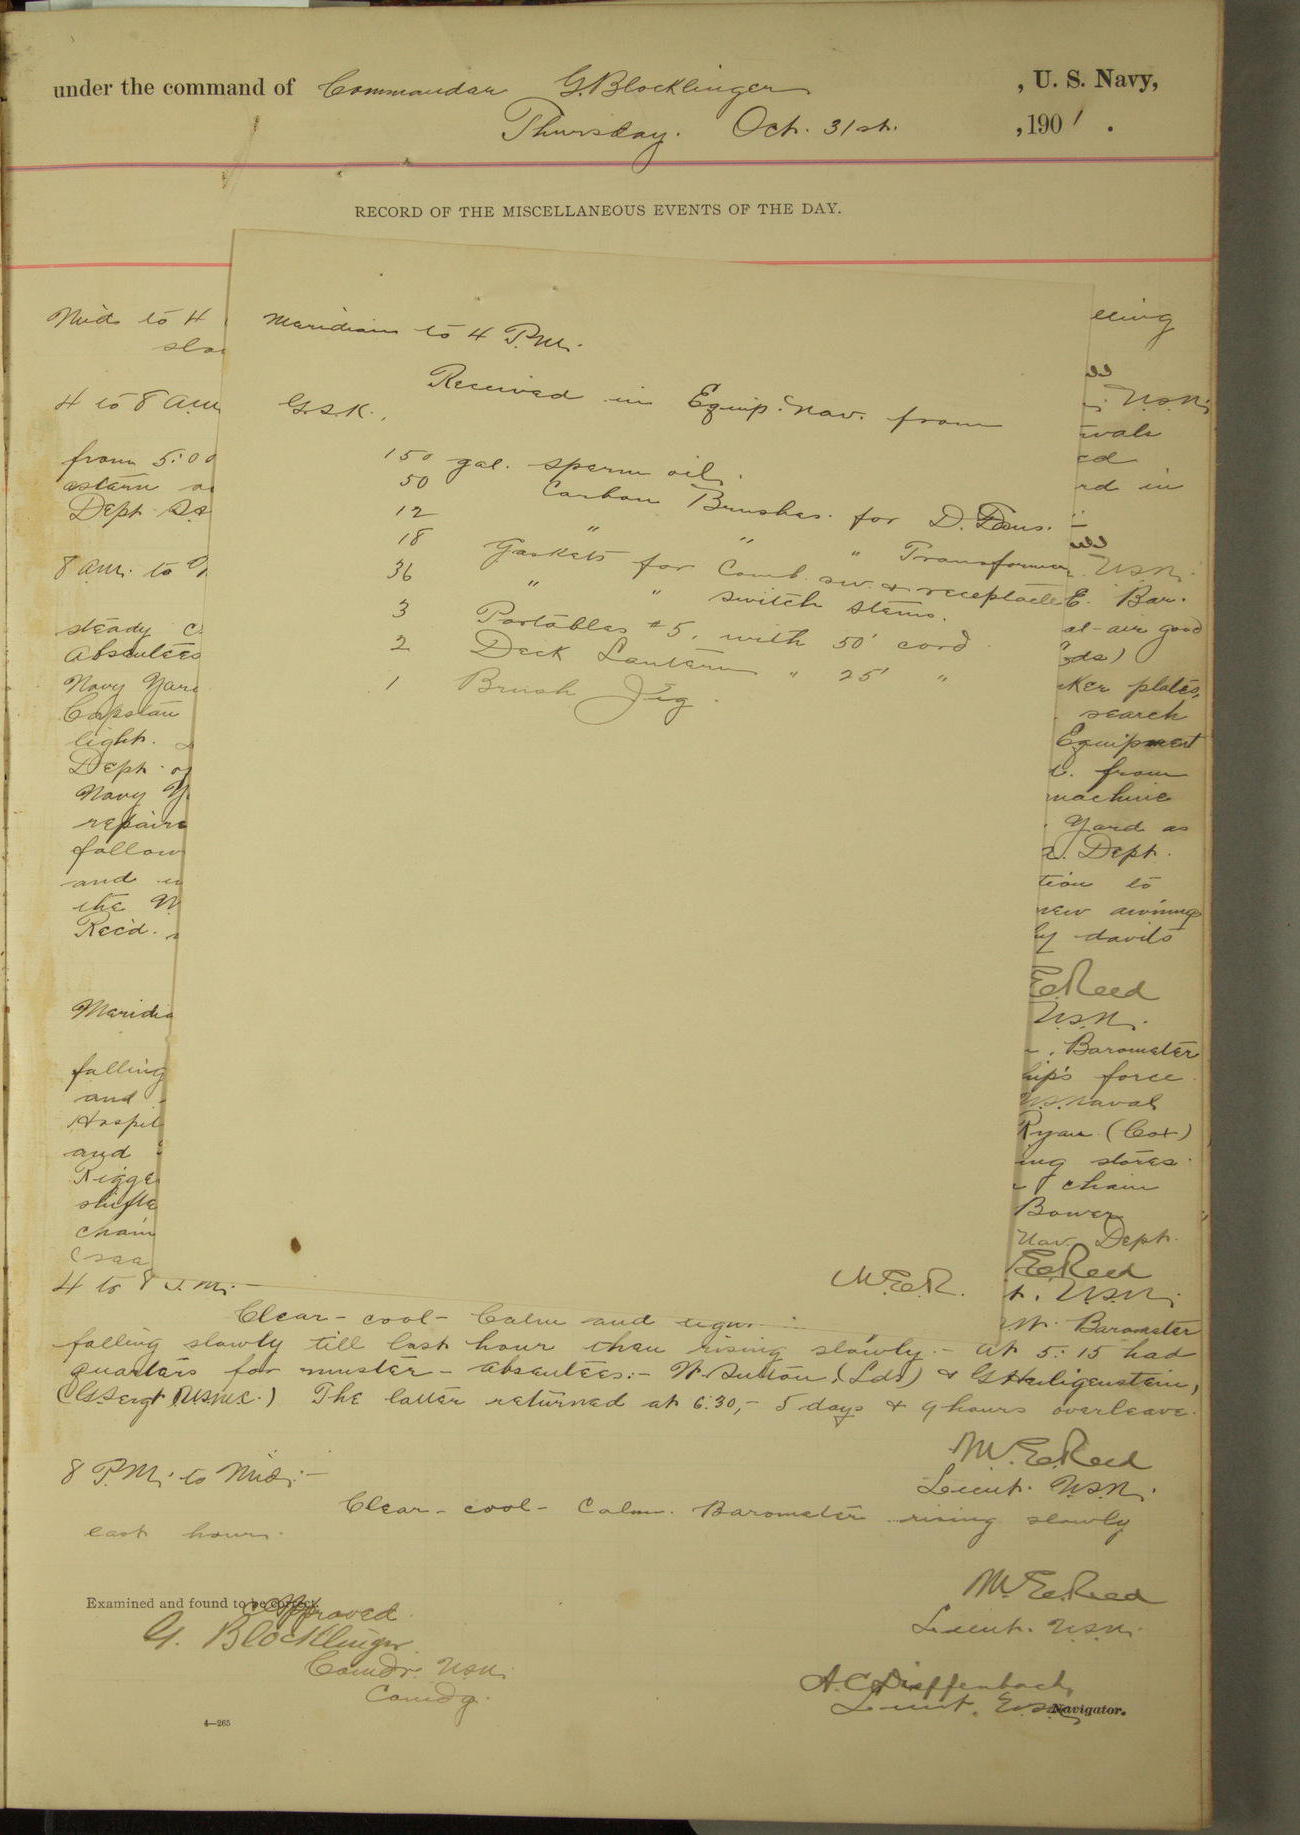 under the command of Commander G. Blocklinger, U. S. Navy,
Thursday. Oct. 31st. , 1901 .
RECORD OF THE MISCELLANEOUS EVENTS OF THE DAY.
Meridian to 4 P.M.
Received in Equip. Nav. from
G.S.K.,
150 gal. sperm oil.
50 Carbon Brushes. for D. Fans.
12 " " " Transformer
18 Gaskets for Comb. sw. & receptacle
36 " " switch stems.
3 Portables #5, with 50' cord
2 Deck Lantern " 25' "
1 Brush Jig.
M.E.R.
Mid to 4
4 to 8 a.m.
U.S.N.
from 5:00
astern
rd in
Dept.
8 a.m. to
U.S.N.
E. Bar.
steady
al-air good
Absentees
Navy Yard
plates,
Capstan
search
light.
Equipment
Dept.
from
Navy Y
machine
repairs
Yard as
follow
Dept.
and
tion to
the N
new awnings
Rec'd.
by davits
E. Reed
U.S.N.
Meridia
Barometer
falling
hip's force
and
U.S. Naval
Hospit
Ryan (Cox)
and
ing stores.
Rigge
chain
shifte
Bower
chain
Nav. Dept.
E. Reed
4 to 8 P.M. -
t. U.S.N.
Clear - cool - Calm and
Barometer
falling slowly till last hour then rising slowly. - At 5:15 had
quarters for muster - absentees: - W. Sutton, (Lds) & G. Heiligenstein,
(G. Sergt USMC.) The latter returned at 6:30, - 5 days & 9 hours overleave.
M. E. Reed
Lieut. U.S.N.
8 P.M. to Mid: -
Clear - cool - Calm. Barometer rising slowly
last hour.
M. E. Reed
Lieut. U.S.N.
Examined and found to be correct.
Approved
G. Blocklinger
Comdr. U.S.N.
Comdg.
A. C. Dieffenbach
Lieut. U.S.N.
Navigator.
4—265